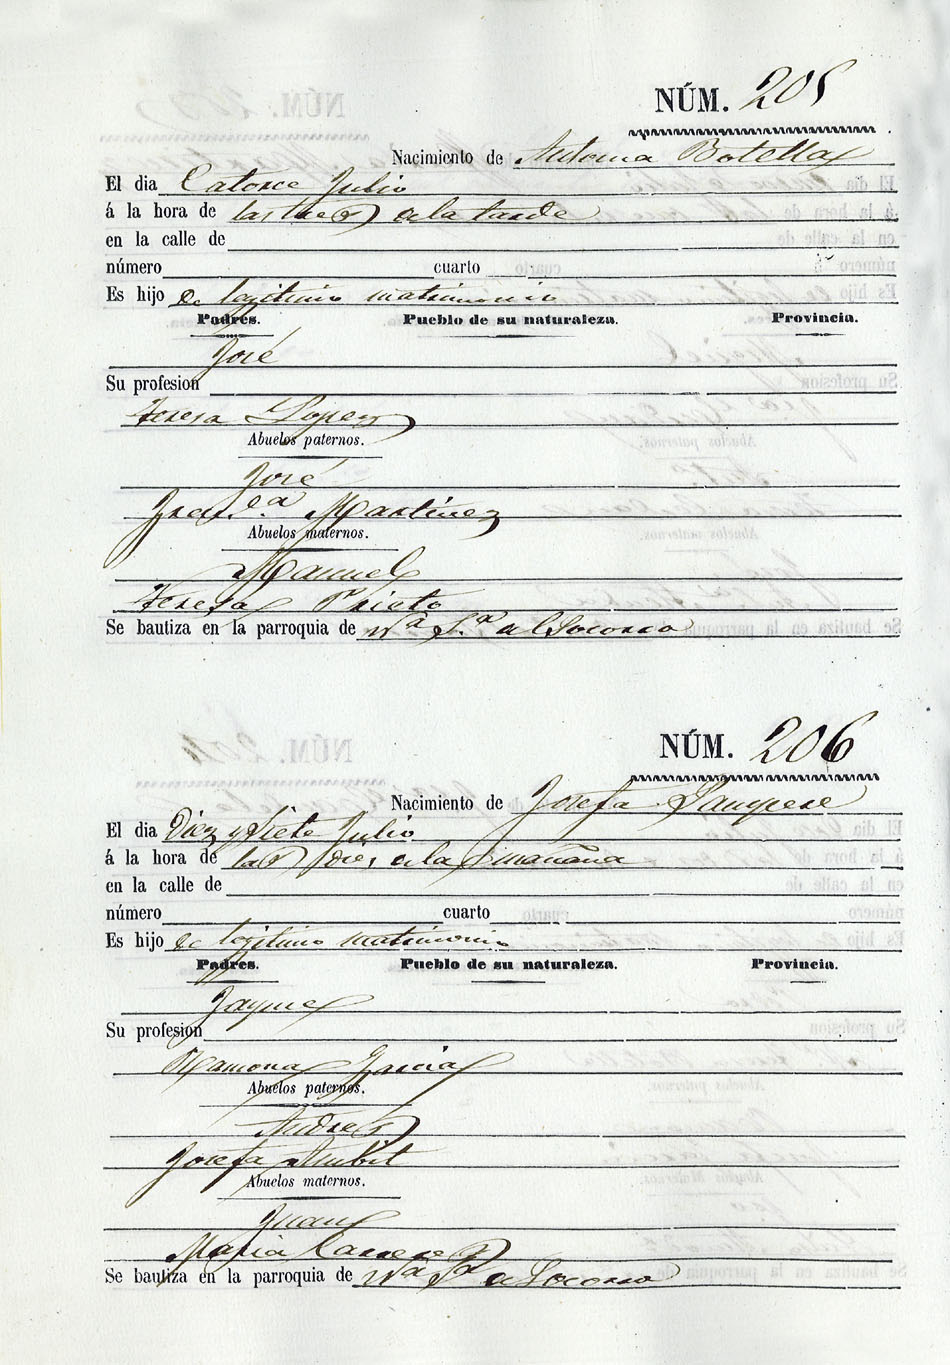 NÚM. 205
Nacimiento de Antonia Botella
El dia Catorce Julio
á la hora de las tres de la tarde
en la calle de
número cuarto
Es hijo de legitimo matrimonio
Padres. Pueblo de su naturaleza. Provincia.
José
Su profesion
Teresa Lopez
Abuelos paternos.
José
Fran.ca Martinez
Abuelos maternos.
Manuel
Teresa Prieto
Se bautiza en la parroquia de Nª Sª del Socorro
NÚM. 206
Nacimiento de Josefa Sempere
El dia Diez y siete Julio
á la hora de las dies de la mañana
en la calle de
número cuarto
Es hijo de legitimo matrimonio
Padres. Pueblo de su naturaleza. Provincia.
Jayme
Su profesion
Ramona Garcia
Abuelos paternos.
Andres
Josefa
Abuelos maternos.
Juan
Maria Carreres
Se bautiza en la parroquia de Nª Sª del Socorro